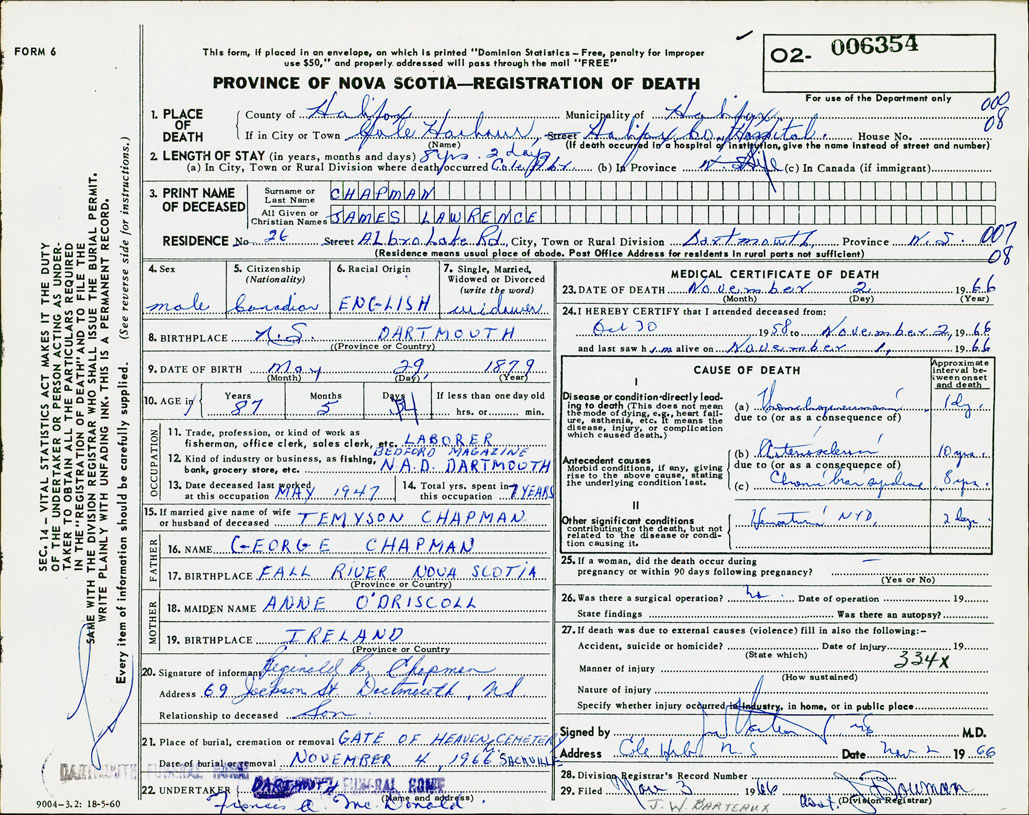 FORM 6
This form, if placed in an envelope, on which is printed "Dominion Statistics – Free, penalty for improper
use $50," and properly addressed will pass through the mail "FREE"
O2- 006354
For use of the Department only
PROVINCE OF NOVA SCOTIA—REGISTRATION OF DEATH
1. PLACE OF DEATH
County of Halifax Municipality of Halifax 000
If in City or Town Cole Harbour, Street Halifax Co. Hospital. House No. 08
(Name) (If death occurred in a hospital or institution, give the name instead of street and number)
2. LENGTH OF STAY (in years, months and days) 8 yrs. 2 days
(a) In City, Town or Rural Division where death occurred Cole Hbr. (b) In Province Life (c) In Canada (if immigrant)
3. PRINT NAME OF DECEASED
Surname or Last Name CHAPMAN
All Given or Christian Names JAMES LAWRENCE
RESIDENCE No 26 Street Albro Lake Rd., City, Town or Rural Division Dartmouth, Province N.S. 007
(Residence means usual place of abode. Post Office Address for residents in rural parts not sufficient) 08
4. Sex male
5. Citizenship (Nationality) Canadian
6. Racial Origin ENGLISH
7. Single, Married, Widowed or Divorced (write the word) widower
8. BIRTHPLACE N.S. DARTMOUTH
(Province or Country)
9. DATE OF BIRTH May 29, 1879
(Month) (Day) (Year)
10. AGE in Years 87 Months 5 Days If less than one day old hrs. or min.
OCCUPATION
11. Trade, profession, or kind of work as
fisherman, office clerk, sales clerk, etc. LABORER
12. Kind of industry or business, as fishing, BEDFORD MAGAZINE
bank, grocery store, etc. N.A.D. DARTMOUTH
13. Date deceased last worked at this occupation MAY 1947
14. Total yrs. spent in this occupation 7 YEARS
15. If married give name of wife or husband of deceased TEMYSON CHAPMAN
FATHER
16. NAME GEORGE CHAPMAN
17. BIRTHPLACE FALL RIVER NOVA SCOTIA
(Province or Country)
MOTHER
18. MAIDEN NAME ANNE O'DRISCOLL
19. BIRTHPLACE IRELAND
(Province or Country)
20. Signature of informant Reginald B. Chapman
Address 69 Jackson St. Dartmouth, NS
Relationship to deceased Son
21. Place of burial, cremation or removal GATE OF HEAVEN CEMETERY
Date of burial or removal NOVEMBER 4, 1966 SACKVILLE
DARTMOUTH FUNERAL HOME
22. UNDERTAKER DARTMOUTH FUNERAL HOME
(Name and address)
Francis A. McDonald.
9004–3.2: 18-5-60
MEDICAL CERTIFICATE OF DEATH
23. DATE OF DEATH November 2 1966
(Month) (Day) (Year)
24. I HEREBY CERTIFY that I attended deceased from:
Oct 30 1958 to November 2, 1966
and last saw him alive on November 1, 1966
CAUSE OF DEATH
Approximate interval between onset and death
I
Disease or condition directly leading to death (This does not mean the mode of dying, e.g., heart failure, asthenia, etc. It means the disease, injury, or complication which caused death.)
(a) Bronchopneumonia 1 dy.
due to (or as a consequence of)
Antecedent causes
Morbid conditions, if any, giving rise to the above cause, stating the underlying condition last.
(b) Arteriosclerosis 10 yrs.
due to (or as a consequence of)
(c) Chronic brain syndrome 8 yrs.
II
Other significant conditions
contributing to the death, but not related to the disease or condition causing it.
Hematuria NYD, 2 days.
25. If a woman, did the death occur during
pregnancy or within 90 days following pregnancy? —
(Yes or No)
26. Was there a surgical operation? no Date of operation 19
State findings Was there an autopsy?
27. If death was due to external causes (violence) fill in also the following:–
Accident, suicide or homicide? Date of injury 19
(State which) 334x
Manner of injury
(How sustained)
Nature of injury
Specify whether injury occurred in industry, in home, or in public place
Signed by M.D.
Address Cole Hbr N.S Date Nov 2 1966
28. Division Registrar's Record Number
29. Filed Nov 3 1966 Asst. J. Bowman
(Division Registrar)
J. W. BARTEAUX
SEC. 14 – VITAL STATISTICS ACT MAKES IT THE DUTY
OF THE UNDERTAKER OR PERSON ACTING AS UNDER-
TAKER TO OBTAIN ALL THE PARTICULARS REQUIRED
IN THE "REGISTRATION OF DEATH" AND TO FILE THE
SAME WITH THE DIVISION REGISTRAR WHO SHALL ISSUE THE BURIAL PERMIT.
WRITE PLAINLY WITH UNFADING INK. THIS IS A PERMANENT RECORD.
Every item of information should be carefully supplied. (See reverse side for instructions.)